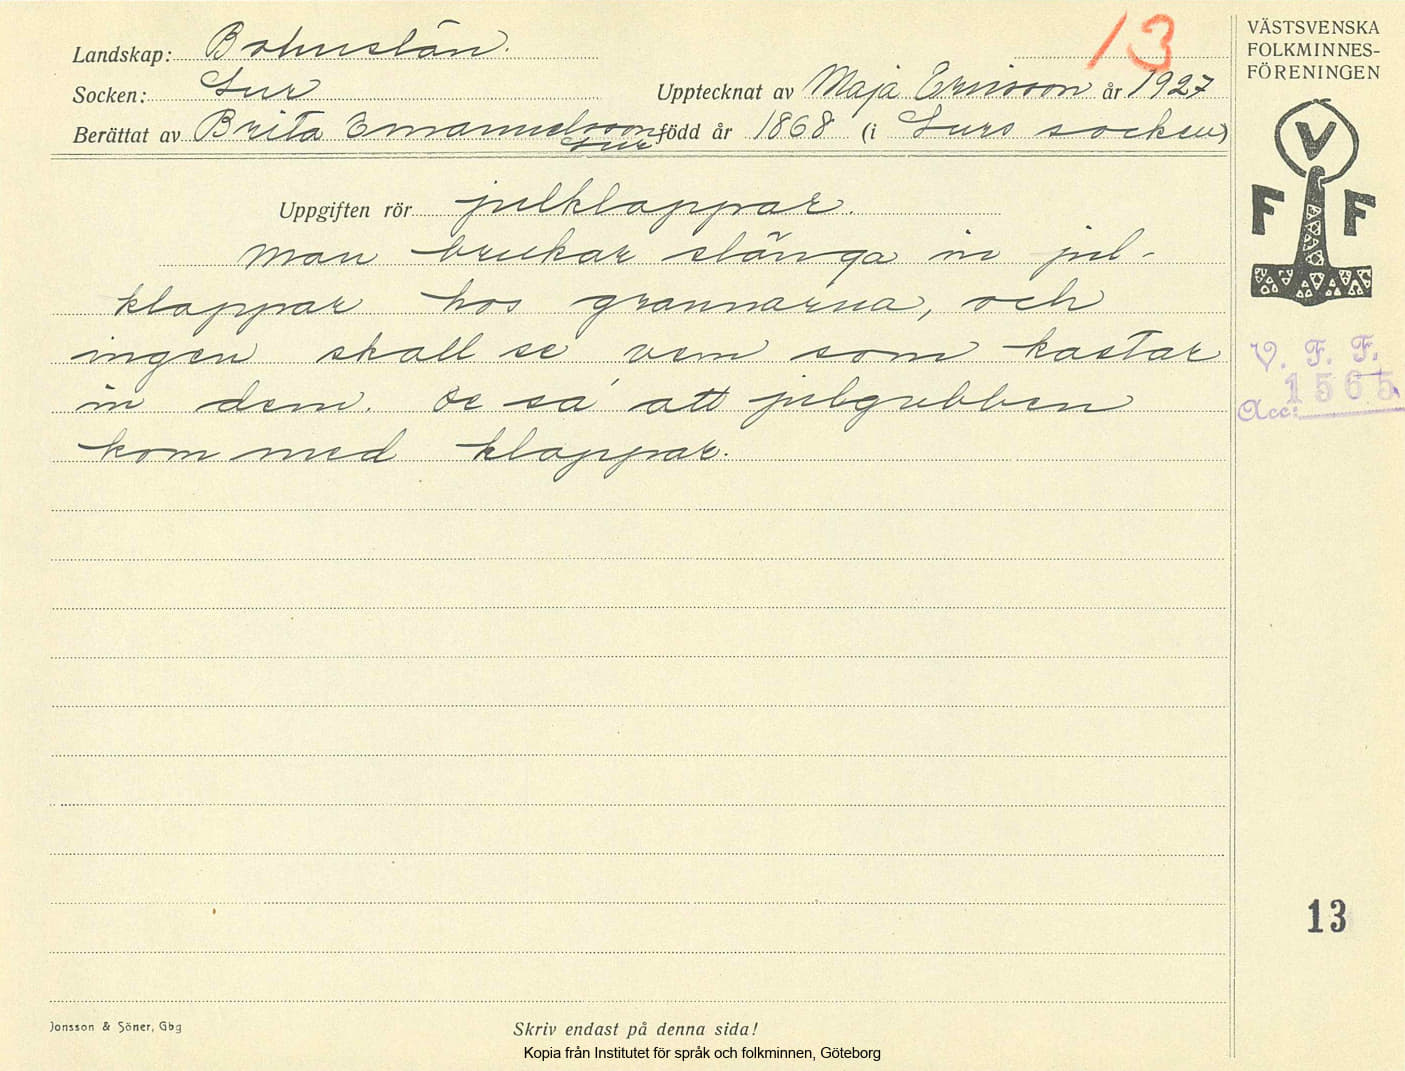 Landskap: Bohuslän.
13
Socken: Lur
Upptecknat av Maja Ericsson år 1927
Berättat av Brita Emanuelsson Lur född år 1868 (i Lurs socken)
Uppgiften rör julklappar.
Man brukar slänga in jul-
klappar hos grannarna, och
ingen skall se vem som kastar
in dem. De sa att julgubben
kom med klappar.
VÄSTSVENSKA
FOLKMINNES-
FÖRENINGEN
V
F F
V. F. F.
Acc: 1565
13
Jonsson & Söner, Gbg
Skriv endast på denna sida!
Kopia från Institutet för språk och folkminnen, Göteborg